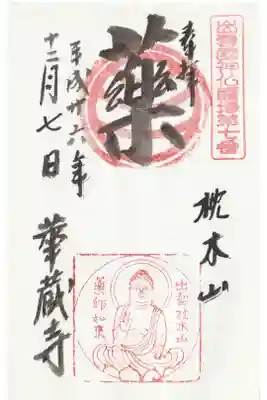 出雲國神仏霊場第七番
奉拝
薬
枕木山
華蔵寺
平成廿六年
十二月七日
出雲枕木山
薬師如来